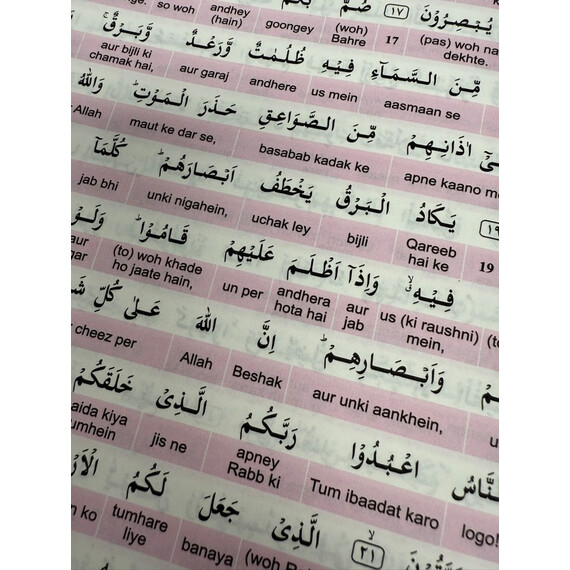 يُبْصِرُوْنَ ﴿١٧﴾ صُمٌّۢ
(pas) woh na dekhte. 17 (woh) Bahre goongey andhey (hain) so woh
مِّنَ السَّمَآءِ فِيْهِ ظُلُمٰتٌ وَّرَعْدٌ وَّبَرْقٌ ۚ
aasmaan se us mein andhere aur garaj aur bijli ki chamak hai,
اٰذَانِهِمْ مِّنَ الصَّوَاعِقِ حَذَرَ الْمَوْتِ ؕ وَاللّٰهُ
apne kaano basabab kadak ke maut ke dar se, Allah
﴿١٩﴾ يَكَادُ الْبَرْقُ يَخْطَفُ اَبْصَارَهُمْ ؕ كُلَّمَاۤ
19 Qareeb hai ke bijli uchak ley unki nigahein, jab bhi
فِيْهِ ۙۗ وَاِذَاۤ اَظْلَمَ عَلَيْهِمْ قَامُوْا ؕ وَلَوْ
us (ki raushni) mein, aur jab andhera hota hai un per (to) woh khade ho jaate hain, aur
وَاَبْصَارِهِمْ ؕ اِنَّ اللّٰهَ عَلٰى كُلِّ
aur unki aankhein, Beshak Allah cheez per
اعْبُدُوْا رَبَّكُمُ الَّذِىْ خَلَقَكُمْ
logo! Tum ibaadat karo apney Rabb ki jis ne kiya
﴿٢١﴾ الَّذِىْ جَعَلَ لَكُمُ
(woh banaya tumhare liye ko